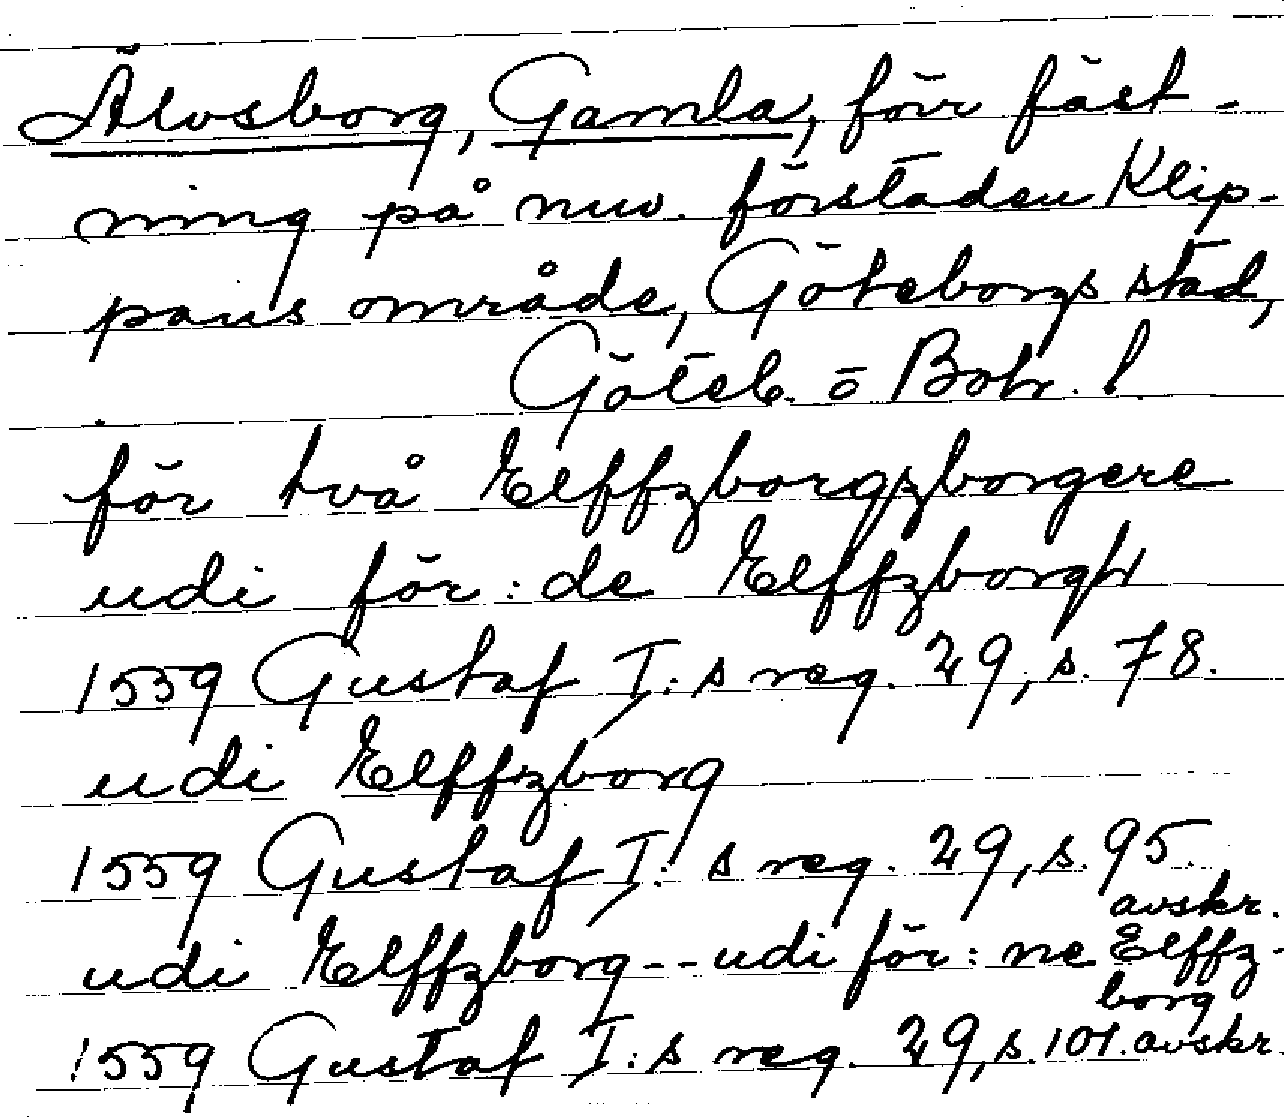 Älvsborg, Gamla, förr fäst-
ning på nuv. förstaden Klip-
pans område, Göteborgs stad,
Göteb. o Boh. l
för två Elffzborgzborgere
udi för:de Elffzborgh
1559 Gustaf I:s reg. 29, s. 78.
udi Elffzborg
1559 Gustaf I:s reg. 29, s. 95.
avskr.
udi Elffzborg -- udi för:ne Elffz-
borg
1559 Gustaf I:s reg. 29, s. 101. avskr.